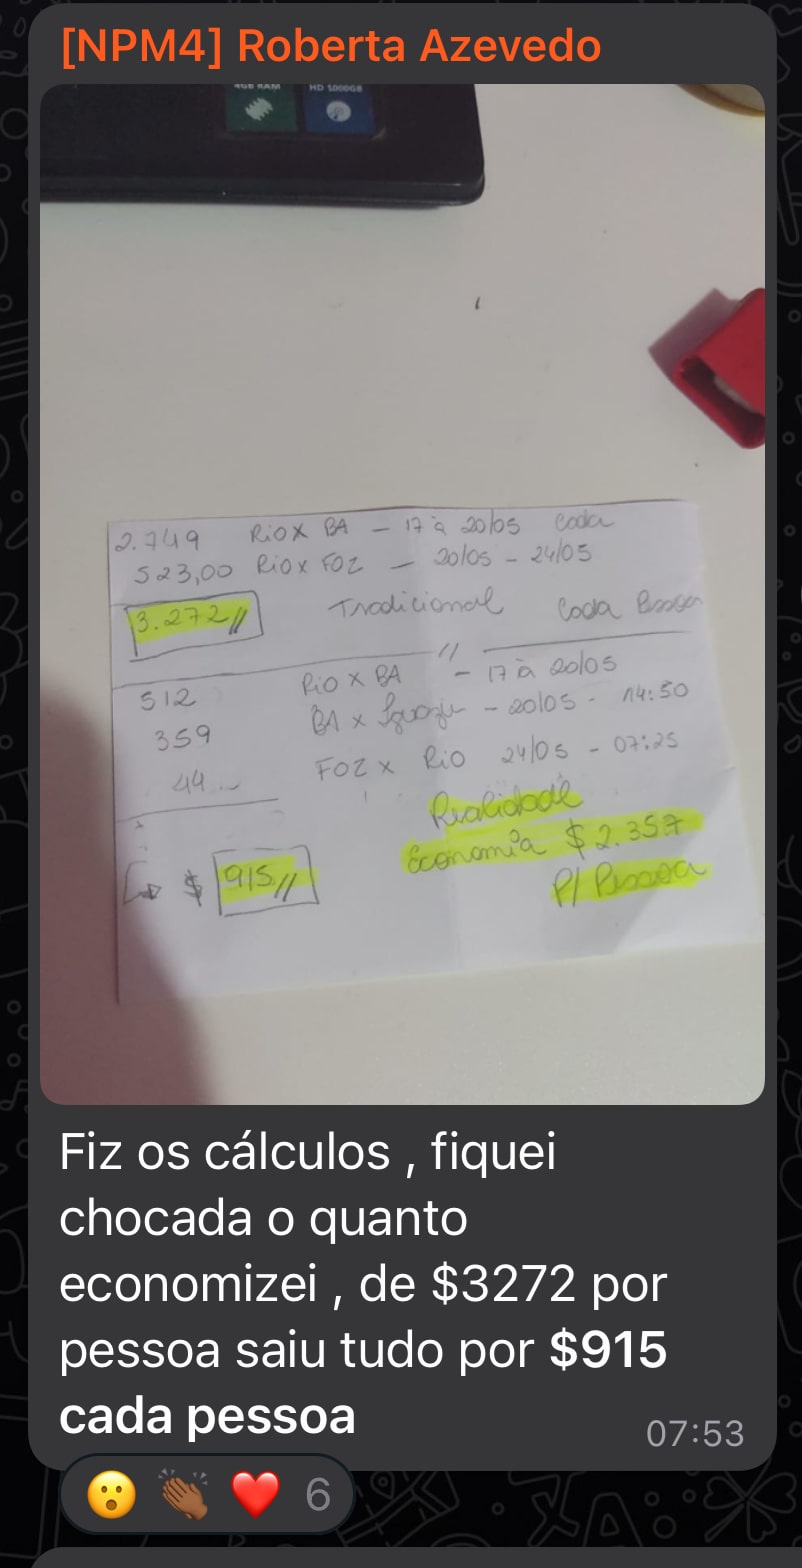 [NPM4] Roberta Azevedo
4GB RAM HD 1000GB
2.749 Rio X BA - 17 à 20/05 Cada
523,00 Rio x FOZ - 20/05 - 24/05
3.272 // Tradicional Cada Pessoa
512 Rio X BA - 17 à 20/05
359 BA x Iguazu - 20/05 - 14:50
44 FOZ x Rio 24/05 - 07:25
Realidade
Economia $ 2.357
$ 915 // P/ Pessoa
Fiz os cálculos , fiquei
chocada o quanto
economizei , de $3272 por
pessoa saiu tudo por $915
cada pessoa
07:53
6